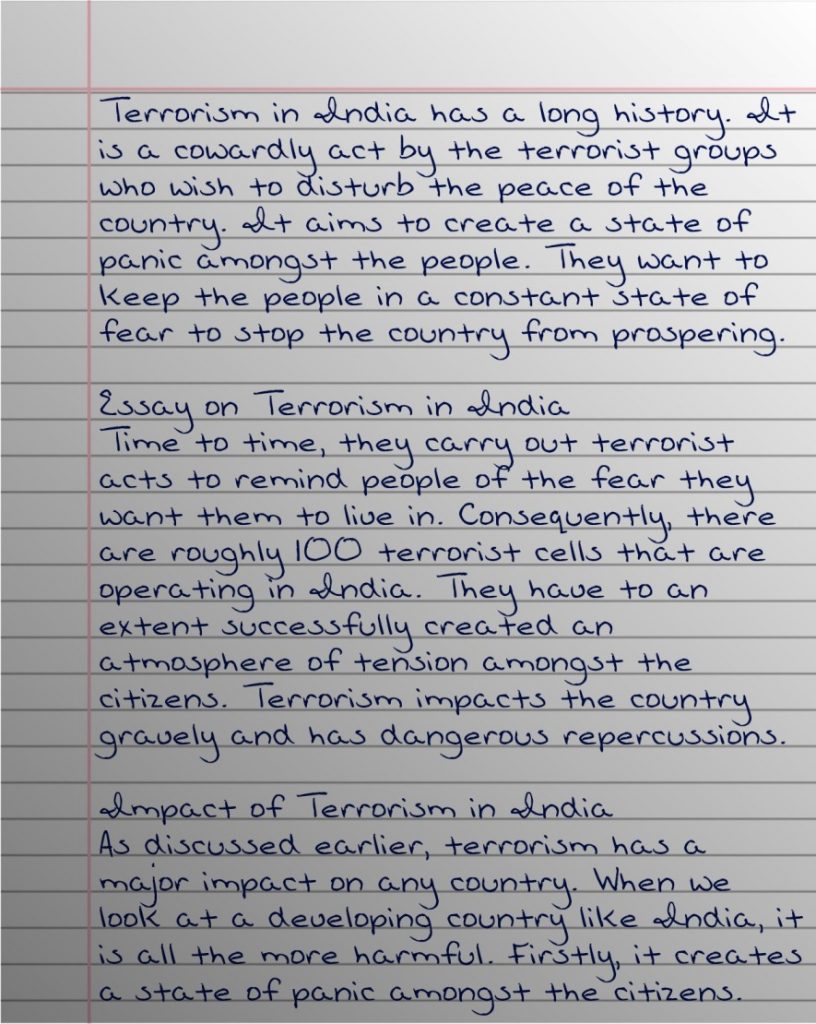 Terrorism in India has a long history. It
is a cowardly act by the terrorist groups
who wish to disturb the peace of the
country. It aims to create a state of
panic amongst the people. They want to
keep the people in a constant state of
fear to stop the country from prospering.
Essay on Terrorism in India
Time to time, they carry out terrorist
acts to remind people of the fear they
want them to live in. Consequently, there
are roughly 100 terrorist cells that are
operating in India. They have to an
extent successfully created an
atmosphere of tension amongst the
citizens. Terrorism impacts the country
gravely and has dangerous repercussions.
Impact of Terrorism in India
As discussed earlier, terrorism has a
major impact on any country. When we
look at a developing country like India, it
is all the more harmful. Firstly, it creates
a state of panic amongst the citizens.